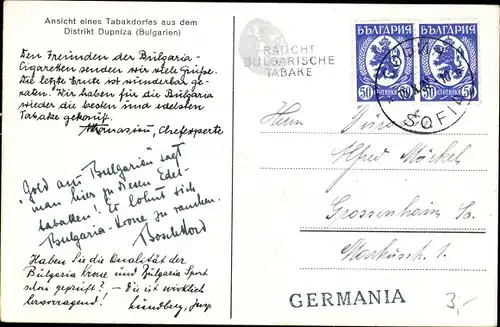 Ansicht eines Tabakdorfes aus dem
Distrikt Dupniza (Bulgarien)
Den Freunden der Bulgaria-
Cigaretten senden wir viele Grüsse.
Die letzte Ernte ist wunderbar ge-
raten. Wir haben für die Bulgaria
wieder die besten und edelsten
Tabake gekauft.
Chefexperte
"Gold aus Bulgarien" sagt
man hier zu diesen Edel-
tabaken! Es lohnt sich
Bulgaria-Krone zu rauchen.
Haben Sie die Qualität der
Bulgaria Krone und Bulgaria Sport
schon geprüft? - Die ist wirklich
hervorragend! Lundberg, Insp
RAUCHT
BULGARISCHE
TABAKE
БЪЛГАРИЯ БЪЛГАРИЯ
50 СТОТИНКИ 50 50 СТОТИНКИ 50
SOFIA
Herrn
Alfred Möckel
Grossenhain Sa.
Markusstr. 1.
GERMANIA
3,-